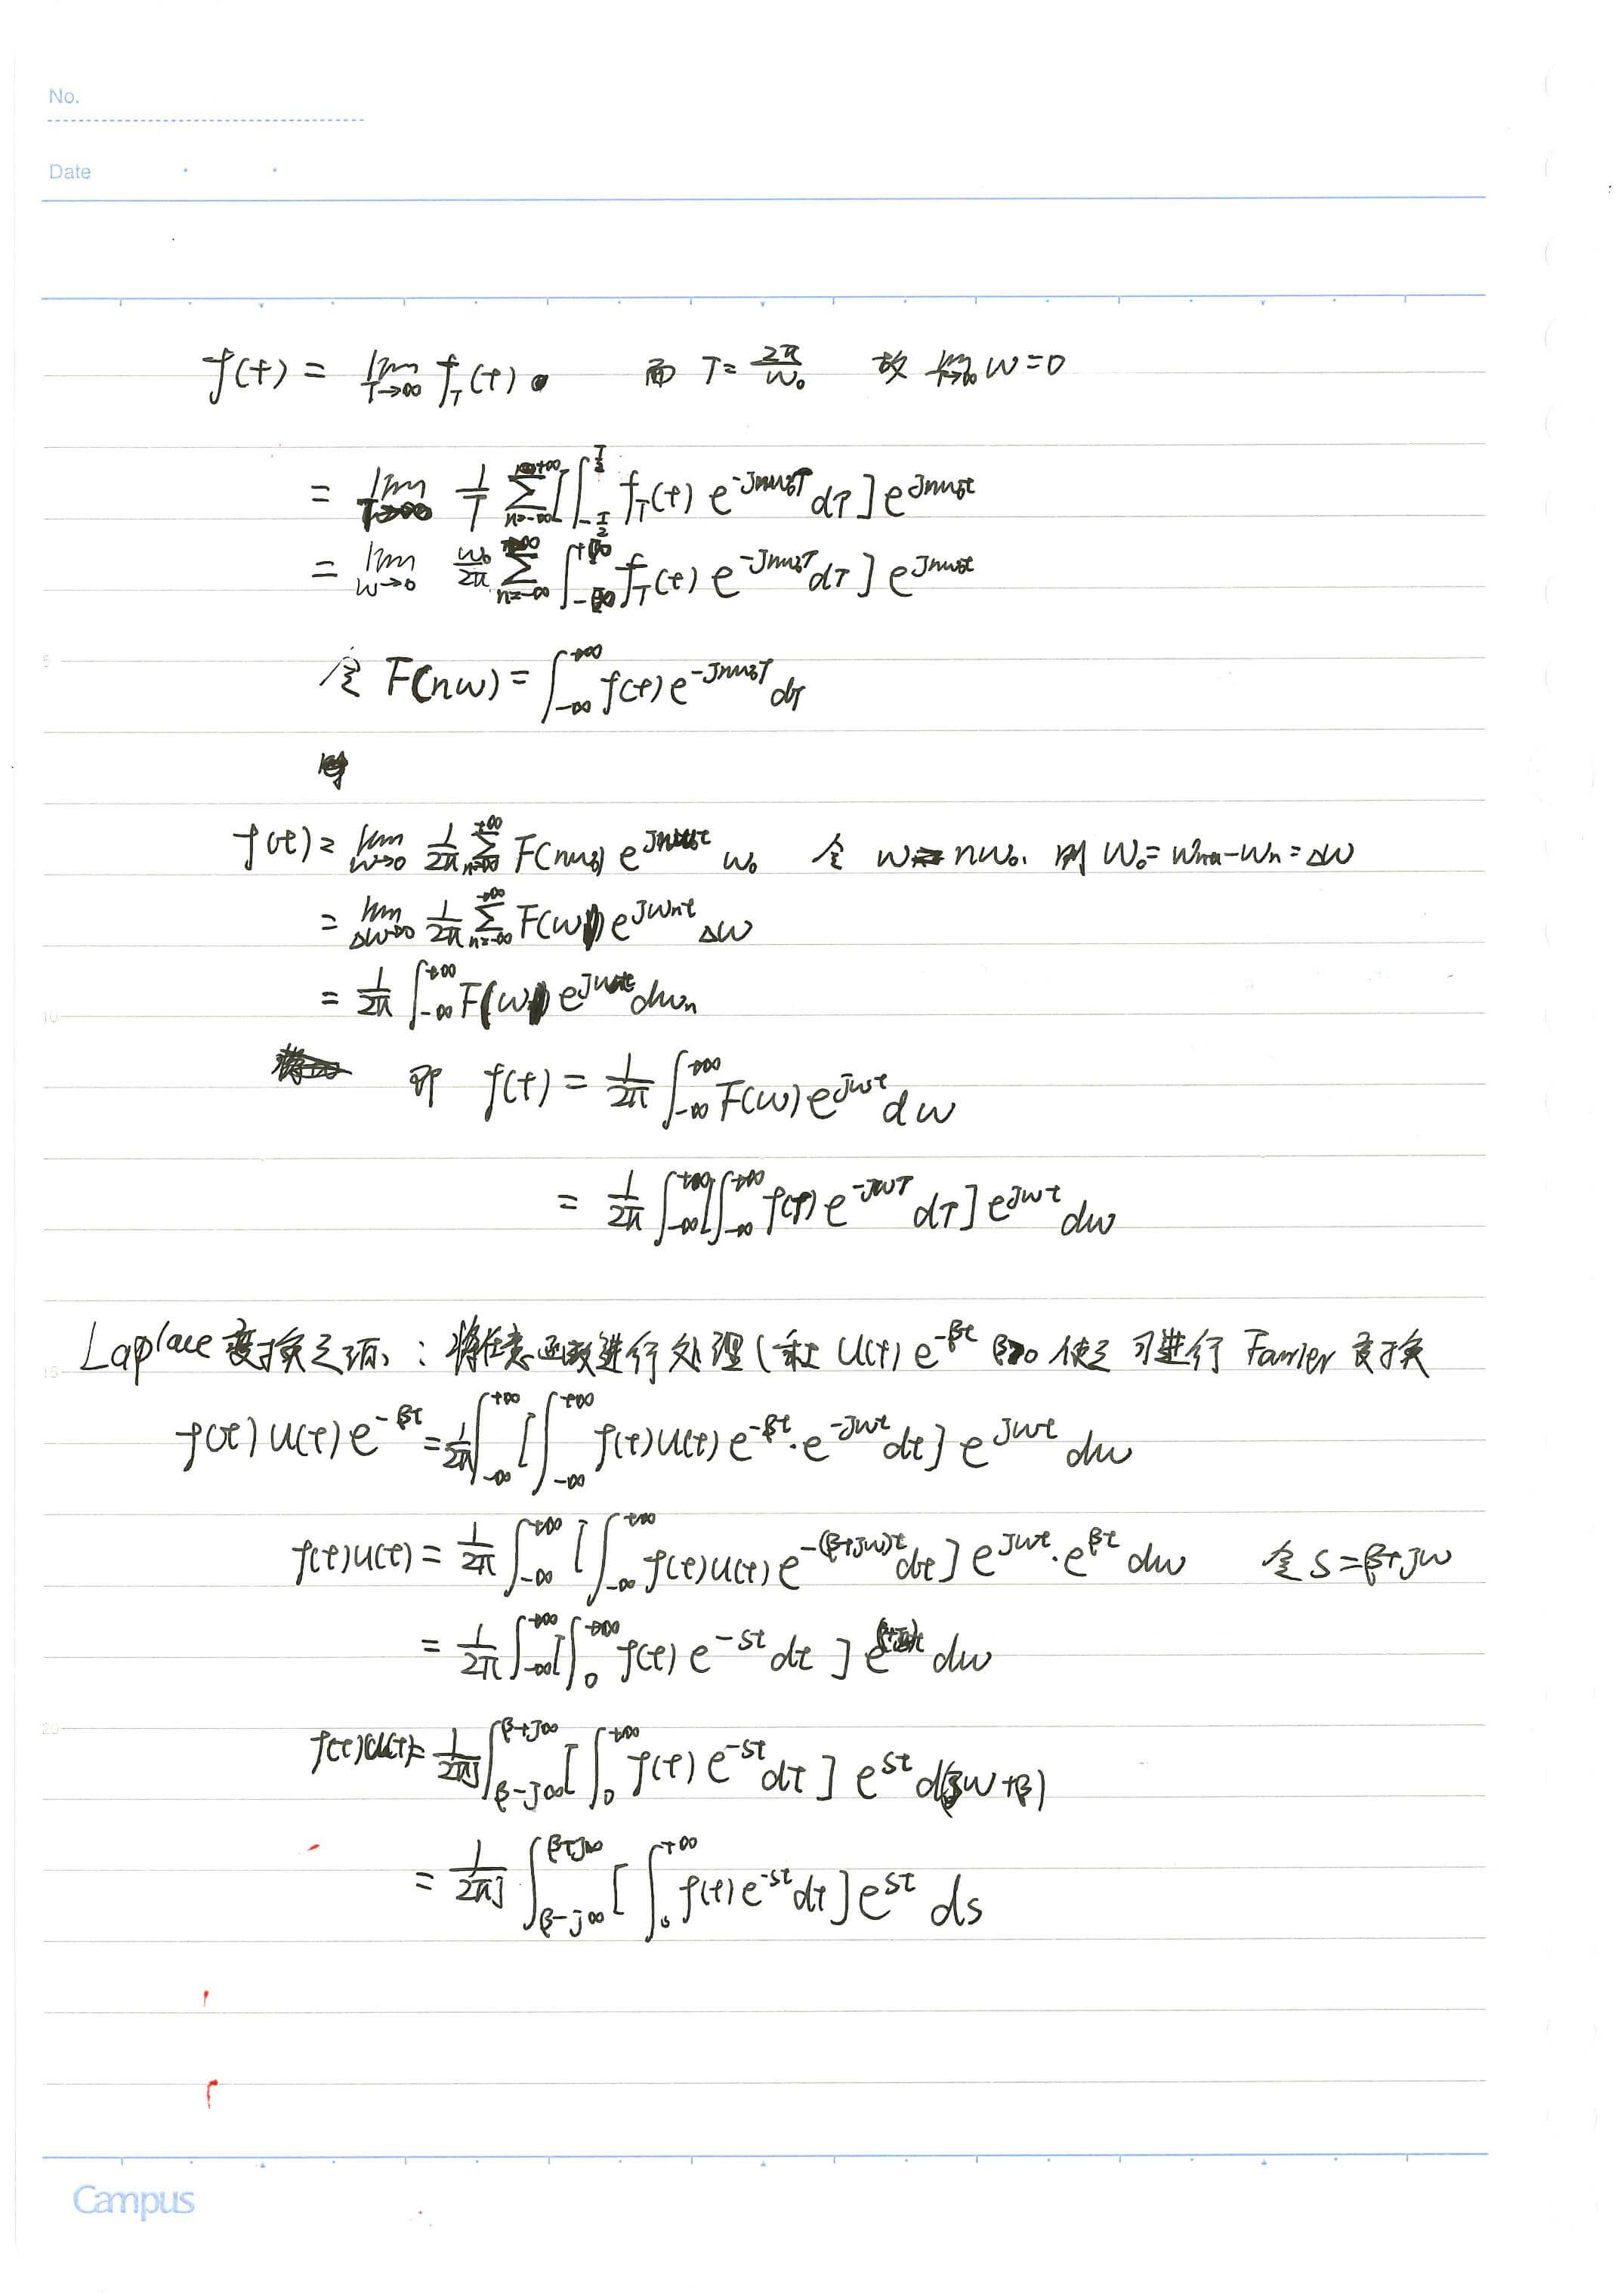 No.
Date
f(t) = lim_{T→∞} f_T(t) 而 T = 2π/w₀ 故 lim_{T→∞} w = 0
= lim 1/T ∑_{n=-∞}^{+∞} [∫_{-T/2}^{T/2} f_T(τ) e^{-jnw₀τ} dτ] e^{jnw₀t}
= lim_{w→0} w₀/2π ∑_{n=-∞}^{+∞} ∫_{-∞}^{+∞} f_T(τ) e^{-jnw₀τ} dτ] e^{jnw₀t}
令 F(nw) = ∫_{-∞}^{+∞} f(τ) e^{-jnw₀τ} dτ
f(t) = lim_{w→0} 1/2π ∑_{n=-∞}^{+∞} F(nw₀) e^{jnw₀t} w₀ 令 w = nw₀, 则 w₀ = w_{n+1} - w_n = Δw
= lim_{Δw→0} 1/2π ∑_{n=-∞}^{+∞} F(w) e^{jw_n t} Δw
= 1/2π ∫_{-∞}^{+∞} F(w) e^{jwt} dw_n
即 f(t) = 1/2π ∫_{-∞}^{+∞} F(w) e^{jwt} dw
= 1/2π ∫_{-∞}^{+∞} [∫_{-∞}^{+∞} f(τ) e^{-jwτ} dτ] e^{jwt} dw
Laplace 变换之: 将任意函数进行处理 (乘 u(t) e^{-βt} β>0 使之可进行 Fourier 变换
f(t) u(t) e^{-βt} = 1/2π ∫_{-∞}^{+∞} [∫_{-∞}^{+∞} f(t) u(t) e^{-βt} · e^{-jwt} dt] e^{jwt} dw
f(t) u(t) = 1/2π ∫_{-∞}^{+∞} [∫_{-∞}^{+∞} f(t) u(t) e^{-(β+jw)t} dt] e^{jwt} · e^{βt} dw 令 S = β+jw
= 1/2π ∫_{-∞}^{+∞} [∫_0^{+∞} f(t) e^{-st} dt] e^{(β+jw)t} dw
f(t) u(t) = 1/2πj ∫_{β-j∞}^{β+j∞} [∫_0^{+∞} f(t) e^{-st} dt] e^{st} d(jw+β)
= 1/2πj ∫_{β-j∞}^{β+j∞} [∫_0^{+∞} f(t) e^{-st} dt] e^{st} ds
5
10
15
20
Campus